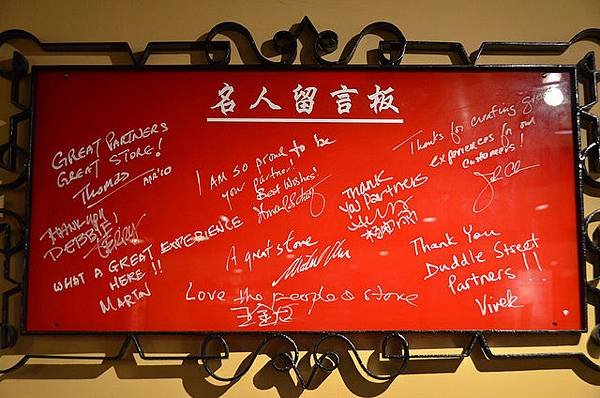 名人留言板
GREAT PARTNERS
GREAT STORE!
Thomas
APR '10
I AM so proud to be
you partner!
Best Wishes!
Thanks for creating great
experiences for our
customers!
John
THANK
YOU Partners
THANK YOU
DEBBIE,
WHAT A GREAT EXPERIENCE
HERE!!
MARIN
A great store
Love the people & store
王金龙
Thank You
Duddle Street
Partners!!
Vivek